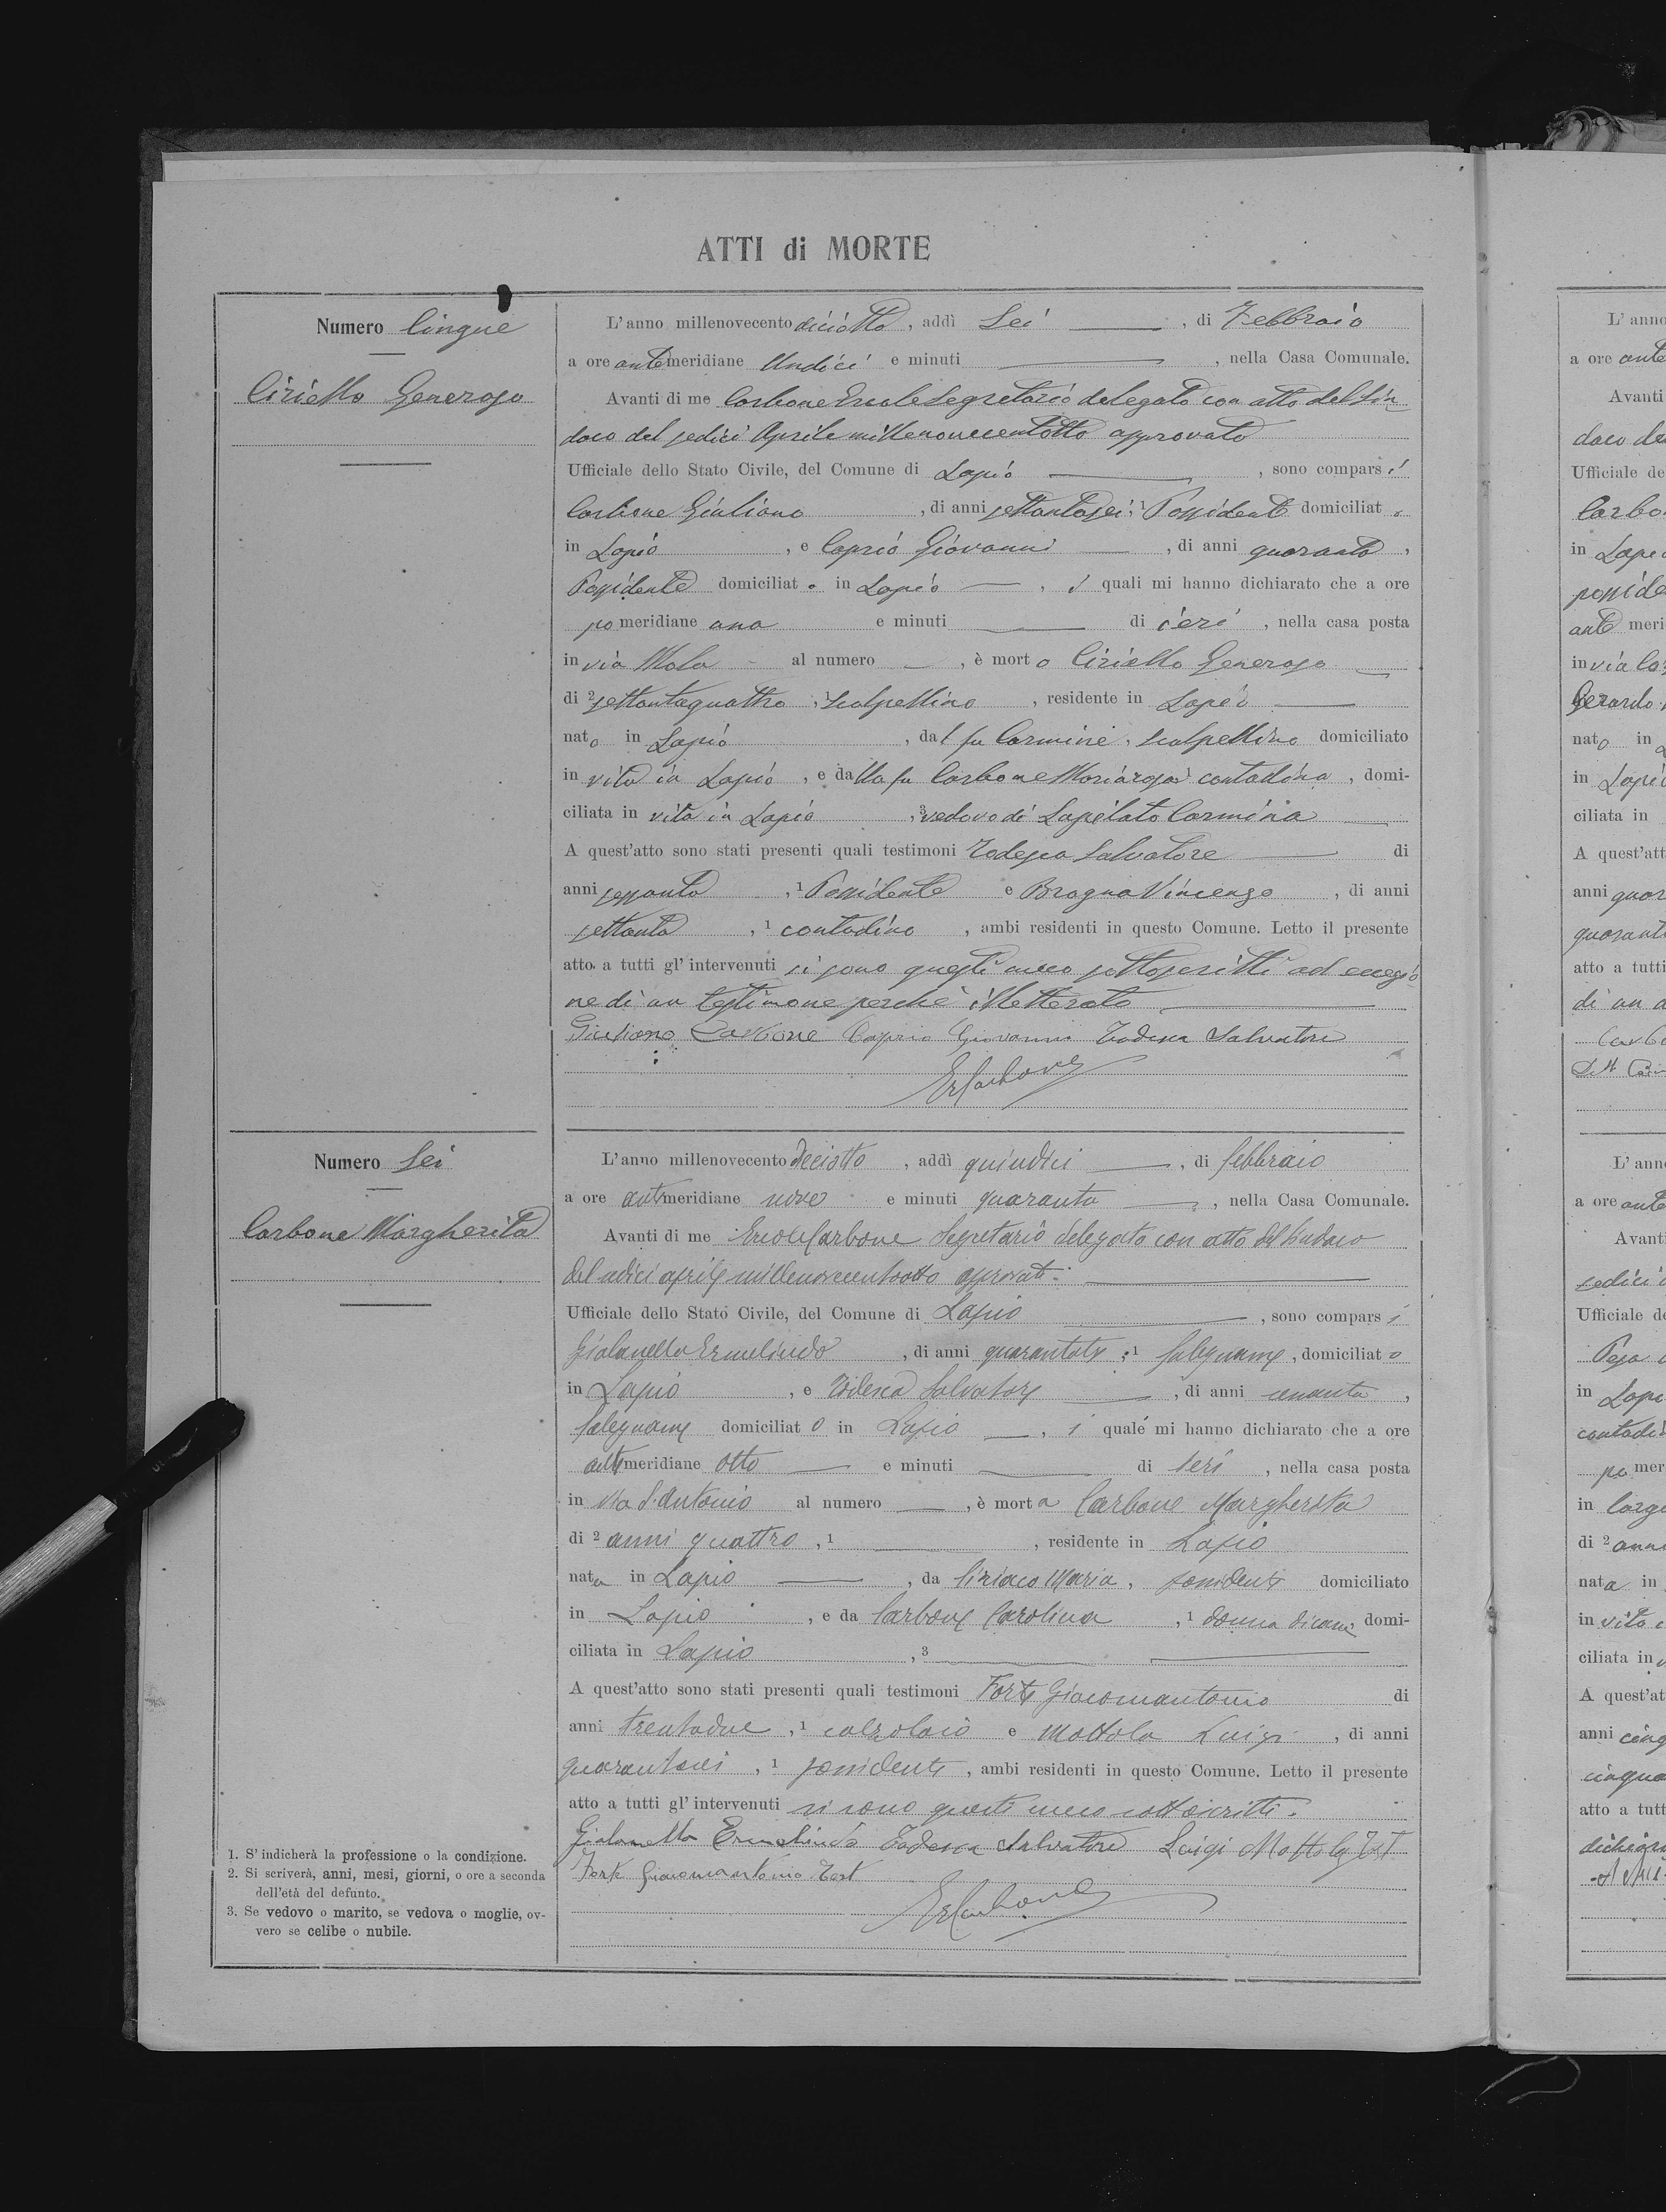 ATTI di MORTE
Numero Cinque
Ciriello Generoso
L'anno millenovecento diciotto, addì Sei, di Febbraio
a ore antemeridiane Undici e minuti, nella Casa Comunale.
Avanti di me Carbone Ercole Segretario delegato con atto del Sin
daco del sedici Aprile millenovecentotto approvato
Ufficiale dello Stato Civile, del Comune di Lapio, sono comparsi
Carbone Giuliano, di anni settantasei, 1 Possidente domiciliato
in Lapio, e Caprio Giovanni, di anni quaranta,
Possidente domiciliato in Lapio, i quali mi hanno dichiarato che a ore
pomeridiane una e minuti di ieri, nella casa posta
in via Mola al numero, è morto Ciriello Generoso
di 2 settantaquattro, 1 scalpellino, residente in Lapio
nato in Lapio, dal fu Carmine, scalpellino domiciliato
in vita in Lapio, e dalla fu Carbone Mariarosa contadina, domi-
ciliata in vita in Lapio, 3 vedovo di Lapilato Carmina
A quest'atto sono stati presenti quali testimoni Todesca Salvatore di
anni sessanta, 1 Possidente e Bragna Vincenzo, di anni
settanta, 1 contadino, ambi residenti in questo Comune. Letto il presente
atto a tutti gl'intervenuti si sono questi meco sottoscritti ad eccezio
ne di un testimone perchè illetterato
Giuliano Carbone Caprio Giovanni Todesca Salvatore
ErCarbone
Numero Sei
Carbone Margherita
L'anno millenovecento Deciotto, addì quindici, di febbraio
a ore antmeridiane nove e minuti quaranta, nella Casa Comunale.
Avanti di me Ercole Carbone Segretario delegato con atto del Sindaco
del sedici aprile millenovecentootto approvato
Ufficiale dello Stato Civile, del Comune di Lapio, sono comparsi
Gialanella Ermelindo, di anni quarantatre, 1 falegname, domiciliato
in Lapio, e Todesca Salvatore, di anni sessanta,
falegname domiciliato in Lapio, i quale mi hanno dichiarato che a ore
antimeridiane otto e minuti di ieri, nella casa posta
in Via S. Antonio al numero, è morta Carbone Margherita
di 2 anni quattro, 1, residente in Lapio
nata in Lapio, da Ciriaco Maria, possidente domiciliato
in Lapio, e da Carbone Carolina, 1 donna di casa, domi-
ciliata in Lapio, 3
A quest'atto sono stati presenti quali testimoni Forte Giacomantonio di
anni trentadue, 1 calzolaio e Mottola Luigi, di anni
quarantasei, 1 possidente, ambi residenti in questo Comune. Letto il presente
atto a tutti gl'intervenuti si sono questi meco sottoscritti.
Gialanella Ermelindo Todesca Salvatore Luigi Mottola Test
Forte Giacomantonio Test
ErCarbone
1. S'indicherà la professione o la condizione.
2. Si scriverà, anni, mesi, giorni, o ore a seconda
dell'età del defunto.
3. Se vedovo o marito, se vedova o moglie, ov-
vero se celibe o nubile.